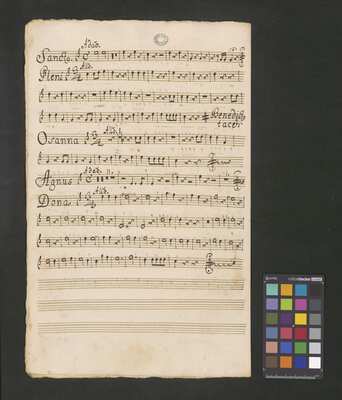 Sancto. Adağ.
Pleni All.
Benedictus
tacet
Osanna All.
Agnus Adağ.
Dona All.